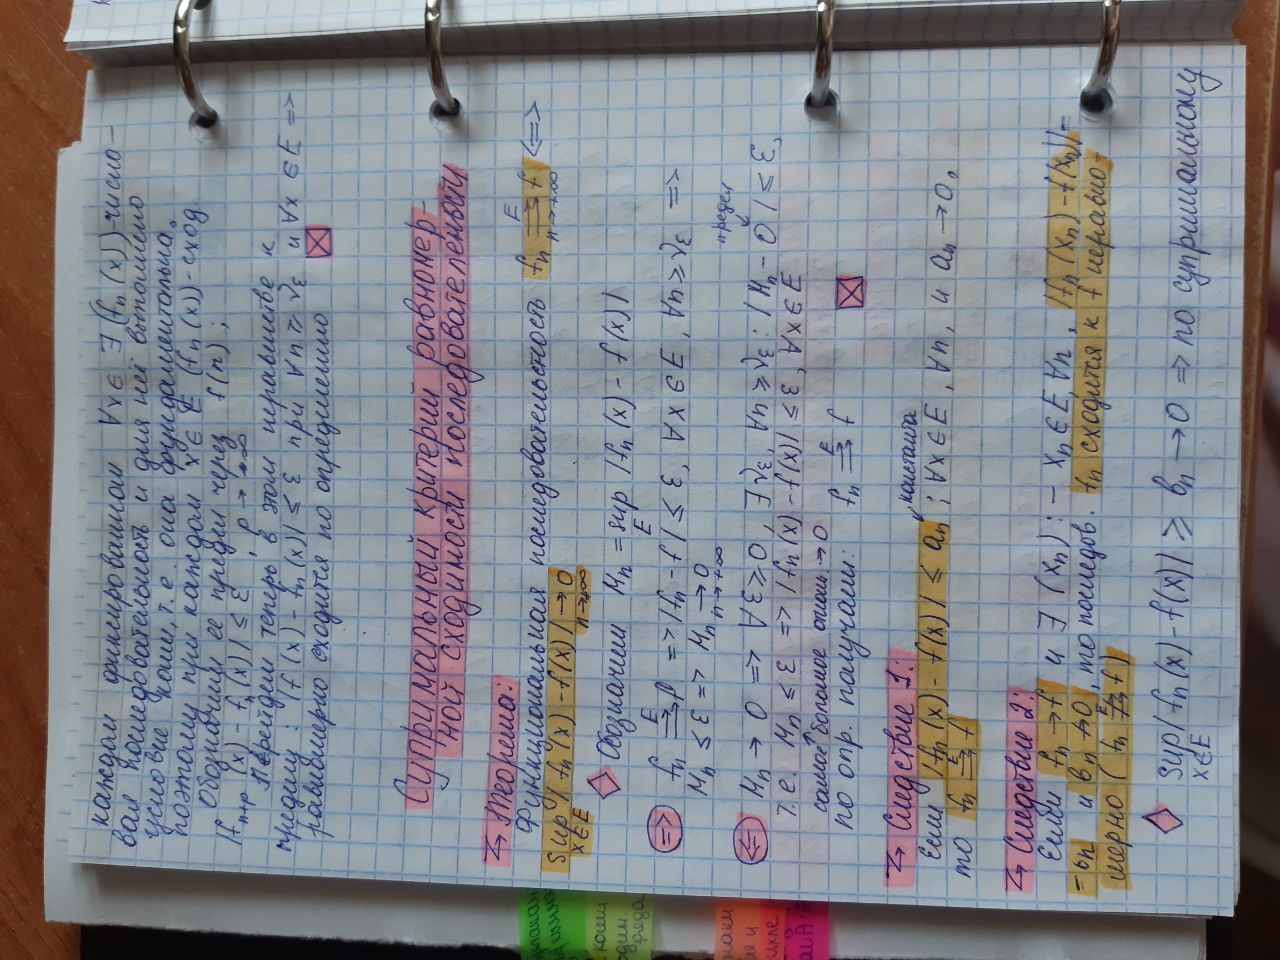 каждом фиксированном ∀x∈E ∃(fₙ(x))-число-
вая последовательность и для неё выполнено
условие Коши, т.е. она фундаментальна.
поэтому при каждом x∈E (fₙ(x))-сход.
Обозначим её предел через f(n);
|fₙ₊ₚ(x) - fₙ(x)| ≤ ε, p → +∞
Перейдем теперь в этом неравенстве к
пределу: |f(x) - fₙ(x)| ≤ ε при ∀n ≥ ν_ε и ∀x ∈ E =>
равномерно сходится по определению
Супримальный критерий равномер-
ной сходимости последователености
Теорема:
Функциональная последовательность fₙ ⇉ f <=>
E
n→+∞
sup |fₙ(x) - f(x)| → 0
x∈E n→+∞
Обозначим Mₙ = sup |fₙ(x) - f(x)|
E
=> fₙ ⇉ f => |fₙ - f| ≤ ε, ∀x∈E, ∀n ≥ ν_ε =>
E
Mₙ ≤ ε => Mₙ → 0
n→+∞
предел
<= Mₙ → 0 => ∀ε>0, ∃ν_ε, ∀n ≥ ν_ε: |Mₙ - 0| ≤ ε,
т.е. Mₙ ≤ ε => |fₙ(x) - f(x)| ≤ ε, ∀x∈E
самое большое откл. → 0
по опр. получаем: fₙ ⇉ f
E
Следствие 1:
константа
Если |fₙ(x) - f(x)| ≤ aₙ; ∀x∈E, ∀n, и aₙ → 0,
то fₙ ⇉ f
E
Следствие 2:
Если fₙ → f и ∃ (xₙ): - xₙ∈E, ∀n, |fₙ(xₙ) - f(xₙ)| =
= bₙ и bₙ ↛ 0, то последов. fₙ сходится к f неравно-
мерно (fₙ ⇉̸ f)
E
sup |fₙ(x) - f(x)| ≥ bₙ → 0 => по супримальному
x∈E